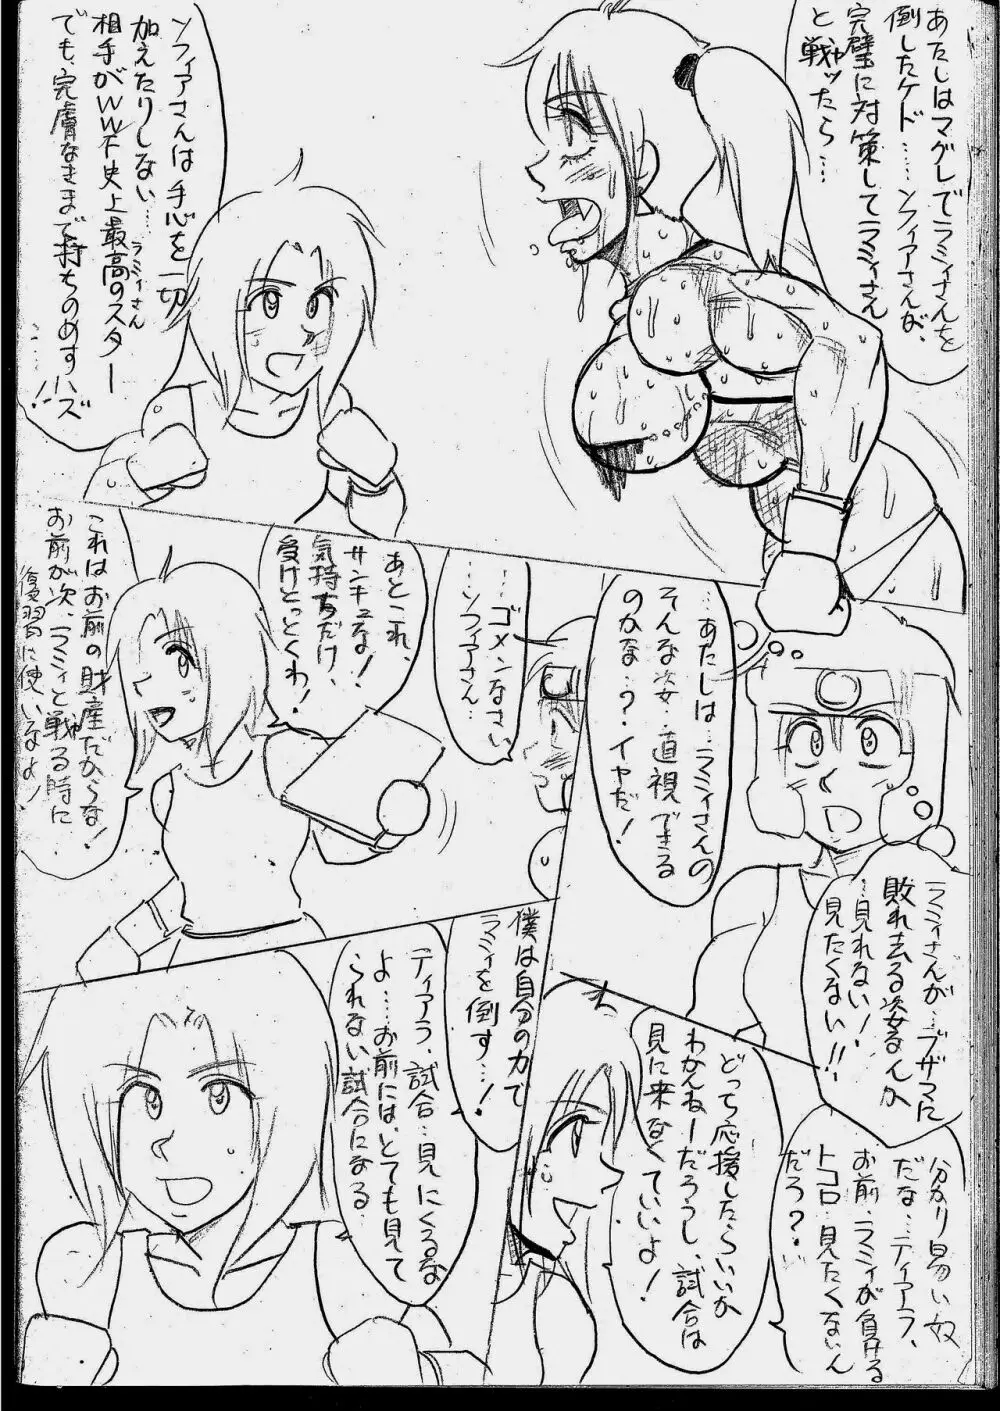 あたしはマグレでラミィさんを
倒したケド……ソフィアさんが、
完璧に対策してラミィさん
と、戦ッたら…
ヤ
ソフィアさんは手心を一切
加えたりしない…
ラミィさん
相手がWWF史上最高のスター
でも、完膚なきまで打ちのめすハズ
……!!
…あたしは…ラミィさんの
そんな姿…直視できる
のかな…?イヤだ!
ラミィさんが…ブザマに
敗れ去る姿なんか
…見れない!
見たくない!!
…ゴメンなさい
…ソフィアさん…
あとこれ、
サンキュな!
気持ちだけ、
受けとっとくわ!
これはお前の財産だからな!
お前が次、ラミィと戦る時に
ヤ
復習に使いなよ!
分かり易い奴
だな…ティアラ、
お前、ラミィが負ける
トコロ見たくないん
だろ?…
どっち応援したらいいか
わかんねーだろうし、試合は
見に来なくていいよ!
僕は自分の力で
ラミィを倒す…!
ティアラ、試合…見にくるな
よ……お前には、とても見て
られない試合になる